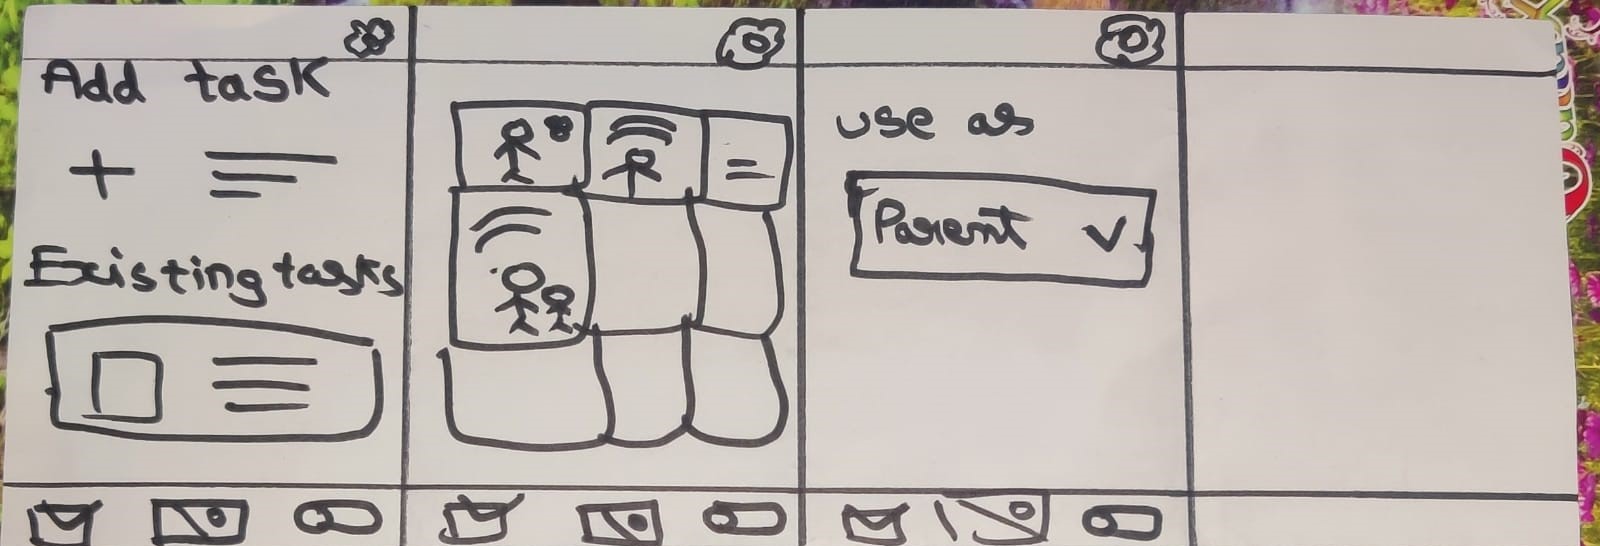 Add task
Existing tasks
use as
Parent